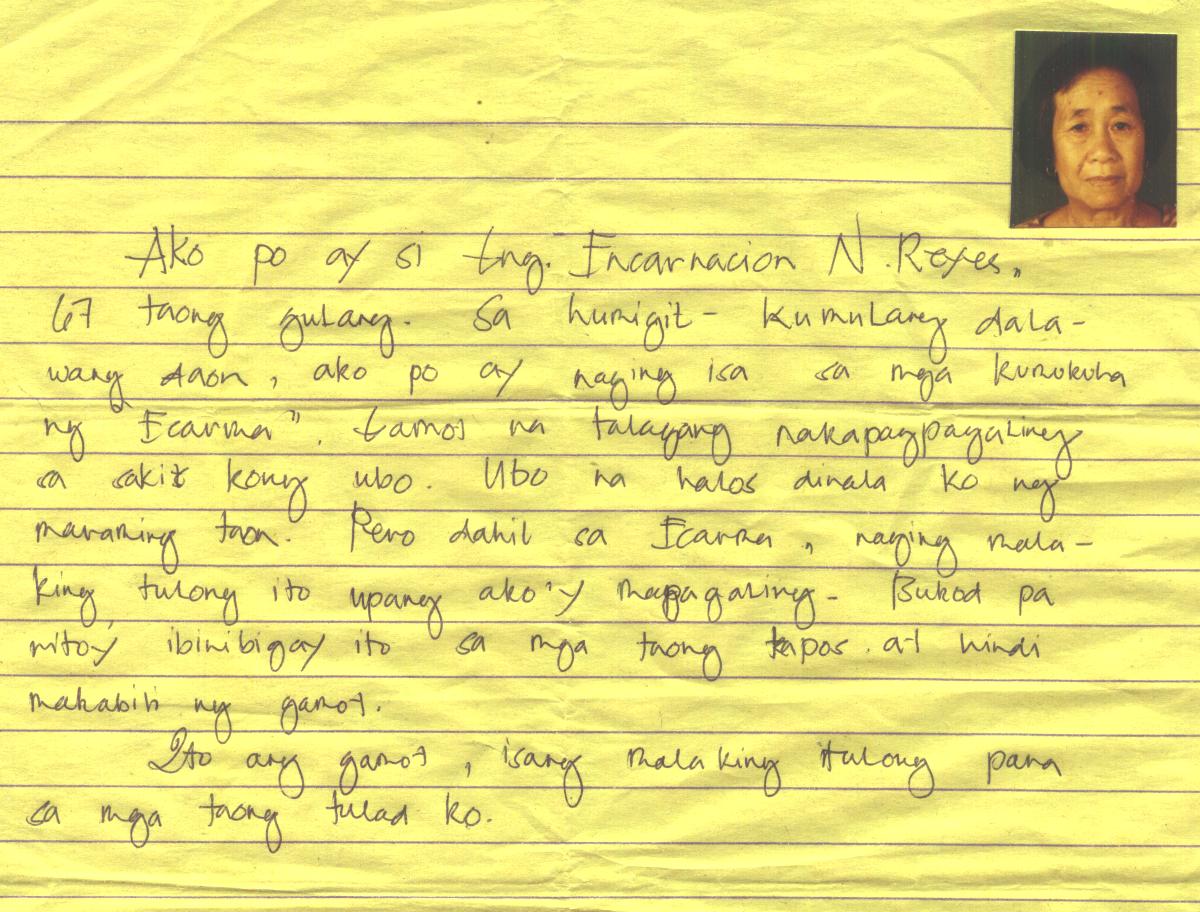 Ako po ay si Eng. Encarnacion N. Reyes,
67 taong gulang. Sa humigit - kumulang dala-
wang taon, ako po ay naging isa sa mga kumukuha
ng "Ecarma". Gamot na talagang nakapagpagaling
sa sakit kong ubo. Ubo na halos dinala ko ng
maraming taon. Pero dahil sa Ecarma, naging mala-
king tulong ito upang ako'y mapagaling. Bukod pa
nitoy ibinibigay ito sa mga taong kapos at hindi
makabili ng gamot.
Ito ang gamot, isang malaking itulong para
sa mga taong tulad ko.